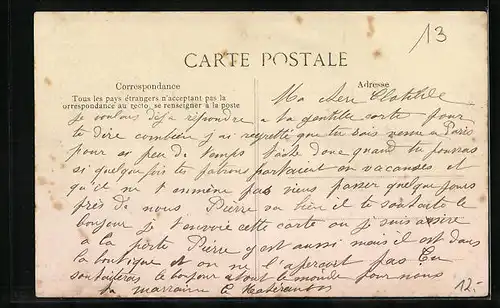 13
CARTE POSTALE
Correspondance
Adresse
Tous les pays étrangers n'acceptant pas la
correspondance au recto, se renseigner à la poste
Ma chere Clotilde
Je voulais déja répondre a ta gentille carte pour
te dire combien j'ai regretté que tu sois venue a Paris
pour si peu de temps tâche donc quand tu pourras
si quelque fois tes patrons partaient en vacances et
qu'il ne t'emmène pas viens passer quelque jours
près de nous Pierre va bien il te souhaite le
bonjour je t'envoie cette carte ou je suis assise
a la porte Pierre y est aussi mais il est dans
la boutique et on ne l'aperçoit pas Tu
souhaiteras le bonjour a tout le monde pour nous
ta marraine
12.-